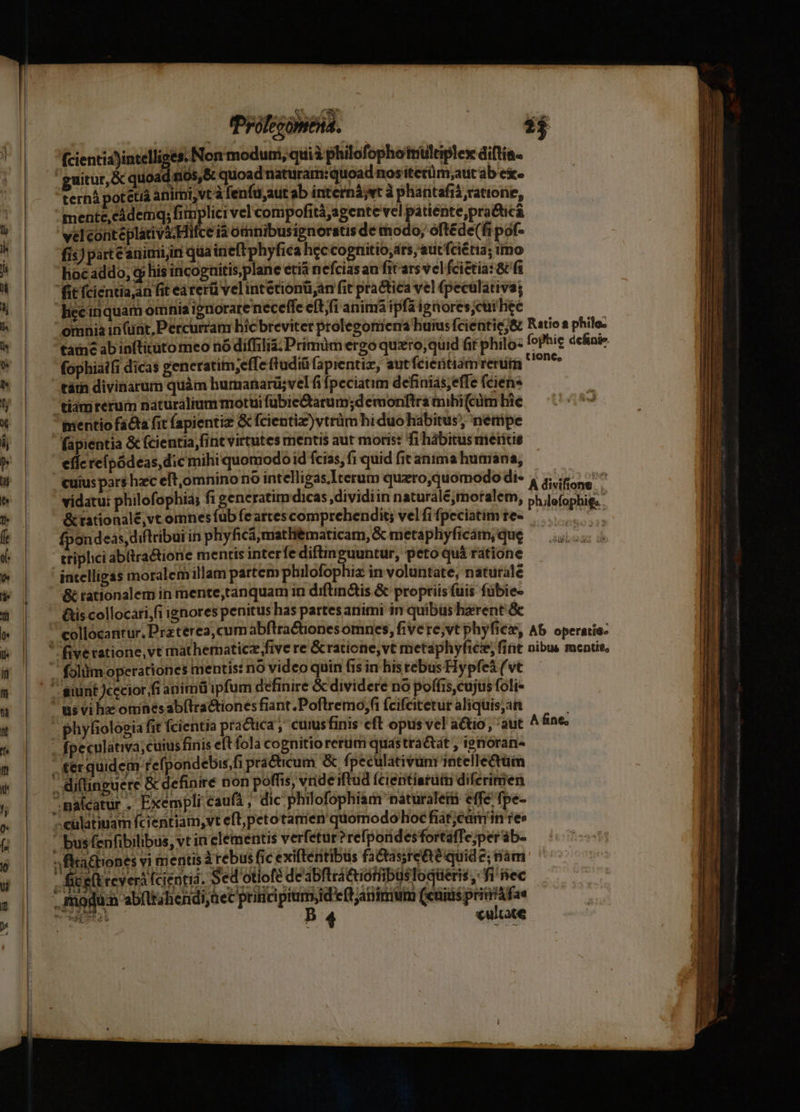 Prolegomena. 23
scientia)intelliges. Non modum, quià philosopho multiplex distin-
guitur, & quoad nos, & quoad naturam: quoad nos iterùm, aut ab ex-
ternâ potẽtiâ animi, vt à sensu, aut ab internâ, vt à phantasiâ, ratione,
mente, eâdemq; simplici vel compositâ, agente vel patiente, practicâ
vel contẽplativâ. Hisce iã omnibus ignoratis de modo, ostẽde (si pos-
sis) parte animi, in qua inest physica hęc cognitio, ars, aut sciẽtia; imo
hoc addo, ꝙ his incognitis, plane etiã nescias an sit ars vel sciẽtia: & si
sit scientia, an sit ea rerũ vel intẽtionũ, an sit practica vel speculativa;
hęc inquam omnia ignorare necesse est, si animã ipsã ignores, cui hęc
omnia insunt. Percurram hîc breviter prolegomena huius scientię, &
tamẽ ab instituto meo nõ dissilia. Primùm ergo quæro, quid sit philo-
sophia? si dicas generatim, esse studiũ sapientiæ, aut scientiam rerum
tàm divinarum quàm humanarũ; vel si speciatim definias, esse sciens
tiam rerum naturalium motui subiectarum; demonstra mihi (cùm hîc
mentio facta sit sapientiæ & scientiæ) vtrùm hi duo habitus, nempe
sapientia & scientia, sint virtutes mentis aut moris: si hábitus mentis
esse respõdeas, dic mihi quomodo id scias, si quid sit anima humana,
cuius pars hæc est, omnino nõ intelligas. Iterum quæro, quomodo di-
vidatur philosophia; si generatim dicas, dividi in naturalẽ, moralem,
& rationalẽ, vt omnes sub se artes comprehendit; vel si speciatim re-
spondeas, distribui in physicã, mathematicam, & metaphysicam, quę
triplici abstractione mentis inter se distinguuntur, peto quâ ratione
intelligas moralem illam partem philosophiæ in voluntate, naturalẽ
& rationalem in mente, tanquam in distinctis & propriis suis subie-
ctis collocari, si ignores penitus has partes animi in quibus hærent &
collocantur. Præterea, cum abstractiones omnes, sive re, vt physicæ,
sive ratione, vt mathematicæ, sive re & ratione, vt metaphysicæ, sint
solùm operationes mentis: nõ video quin sis in his rebus Hypseâ (vt
aiunt) cęcior, si animũ ipsum definire & dividere nõ possis, cujus soli-
us vi hæ omnes abstractiones fiant. Postremo, si sciscitetur aliquis, an
physiologia sit scientia practica, cuius finis est opus vel actio, aut
speculativa, cuius finis est sola cognitio rerum quas tractat, ignoran-
ter quidem respondebis, si practicum & speculativum intellectum
distinguere & definire non possis, vnde istud scientiarum discrimen
nascatur. Exempli causâ, dic philosophiam naturalem esse spe-
culatiuam scientiam, vt est, peto tamen quomodo hoc fiat, cùm in re-
bus sensibilibus, vt in elementis versetur? respondes fortasse, per ab-
stractiones vi mentis à rebus sic existentibus factas; rectè quidẽ; nam
sic est reverà scientia. Sed otiosẽ de abstractionibus loqueris, si nec
modum abstrahendi, nec principium, id est, animum (cuius primâ fa-
B 4 cultate
Ratio a philo-
sophię defini-
tione.
A divisione
philosophię.
Ab operatio-
nibus mentis.
A fine.